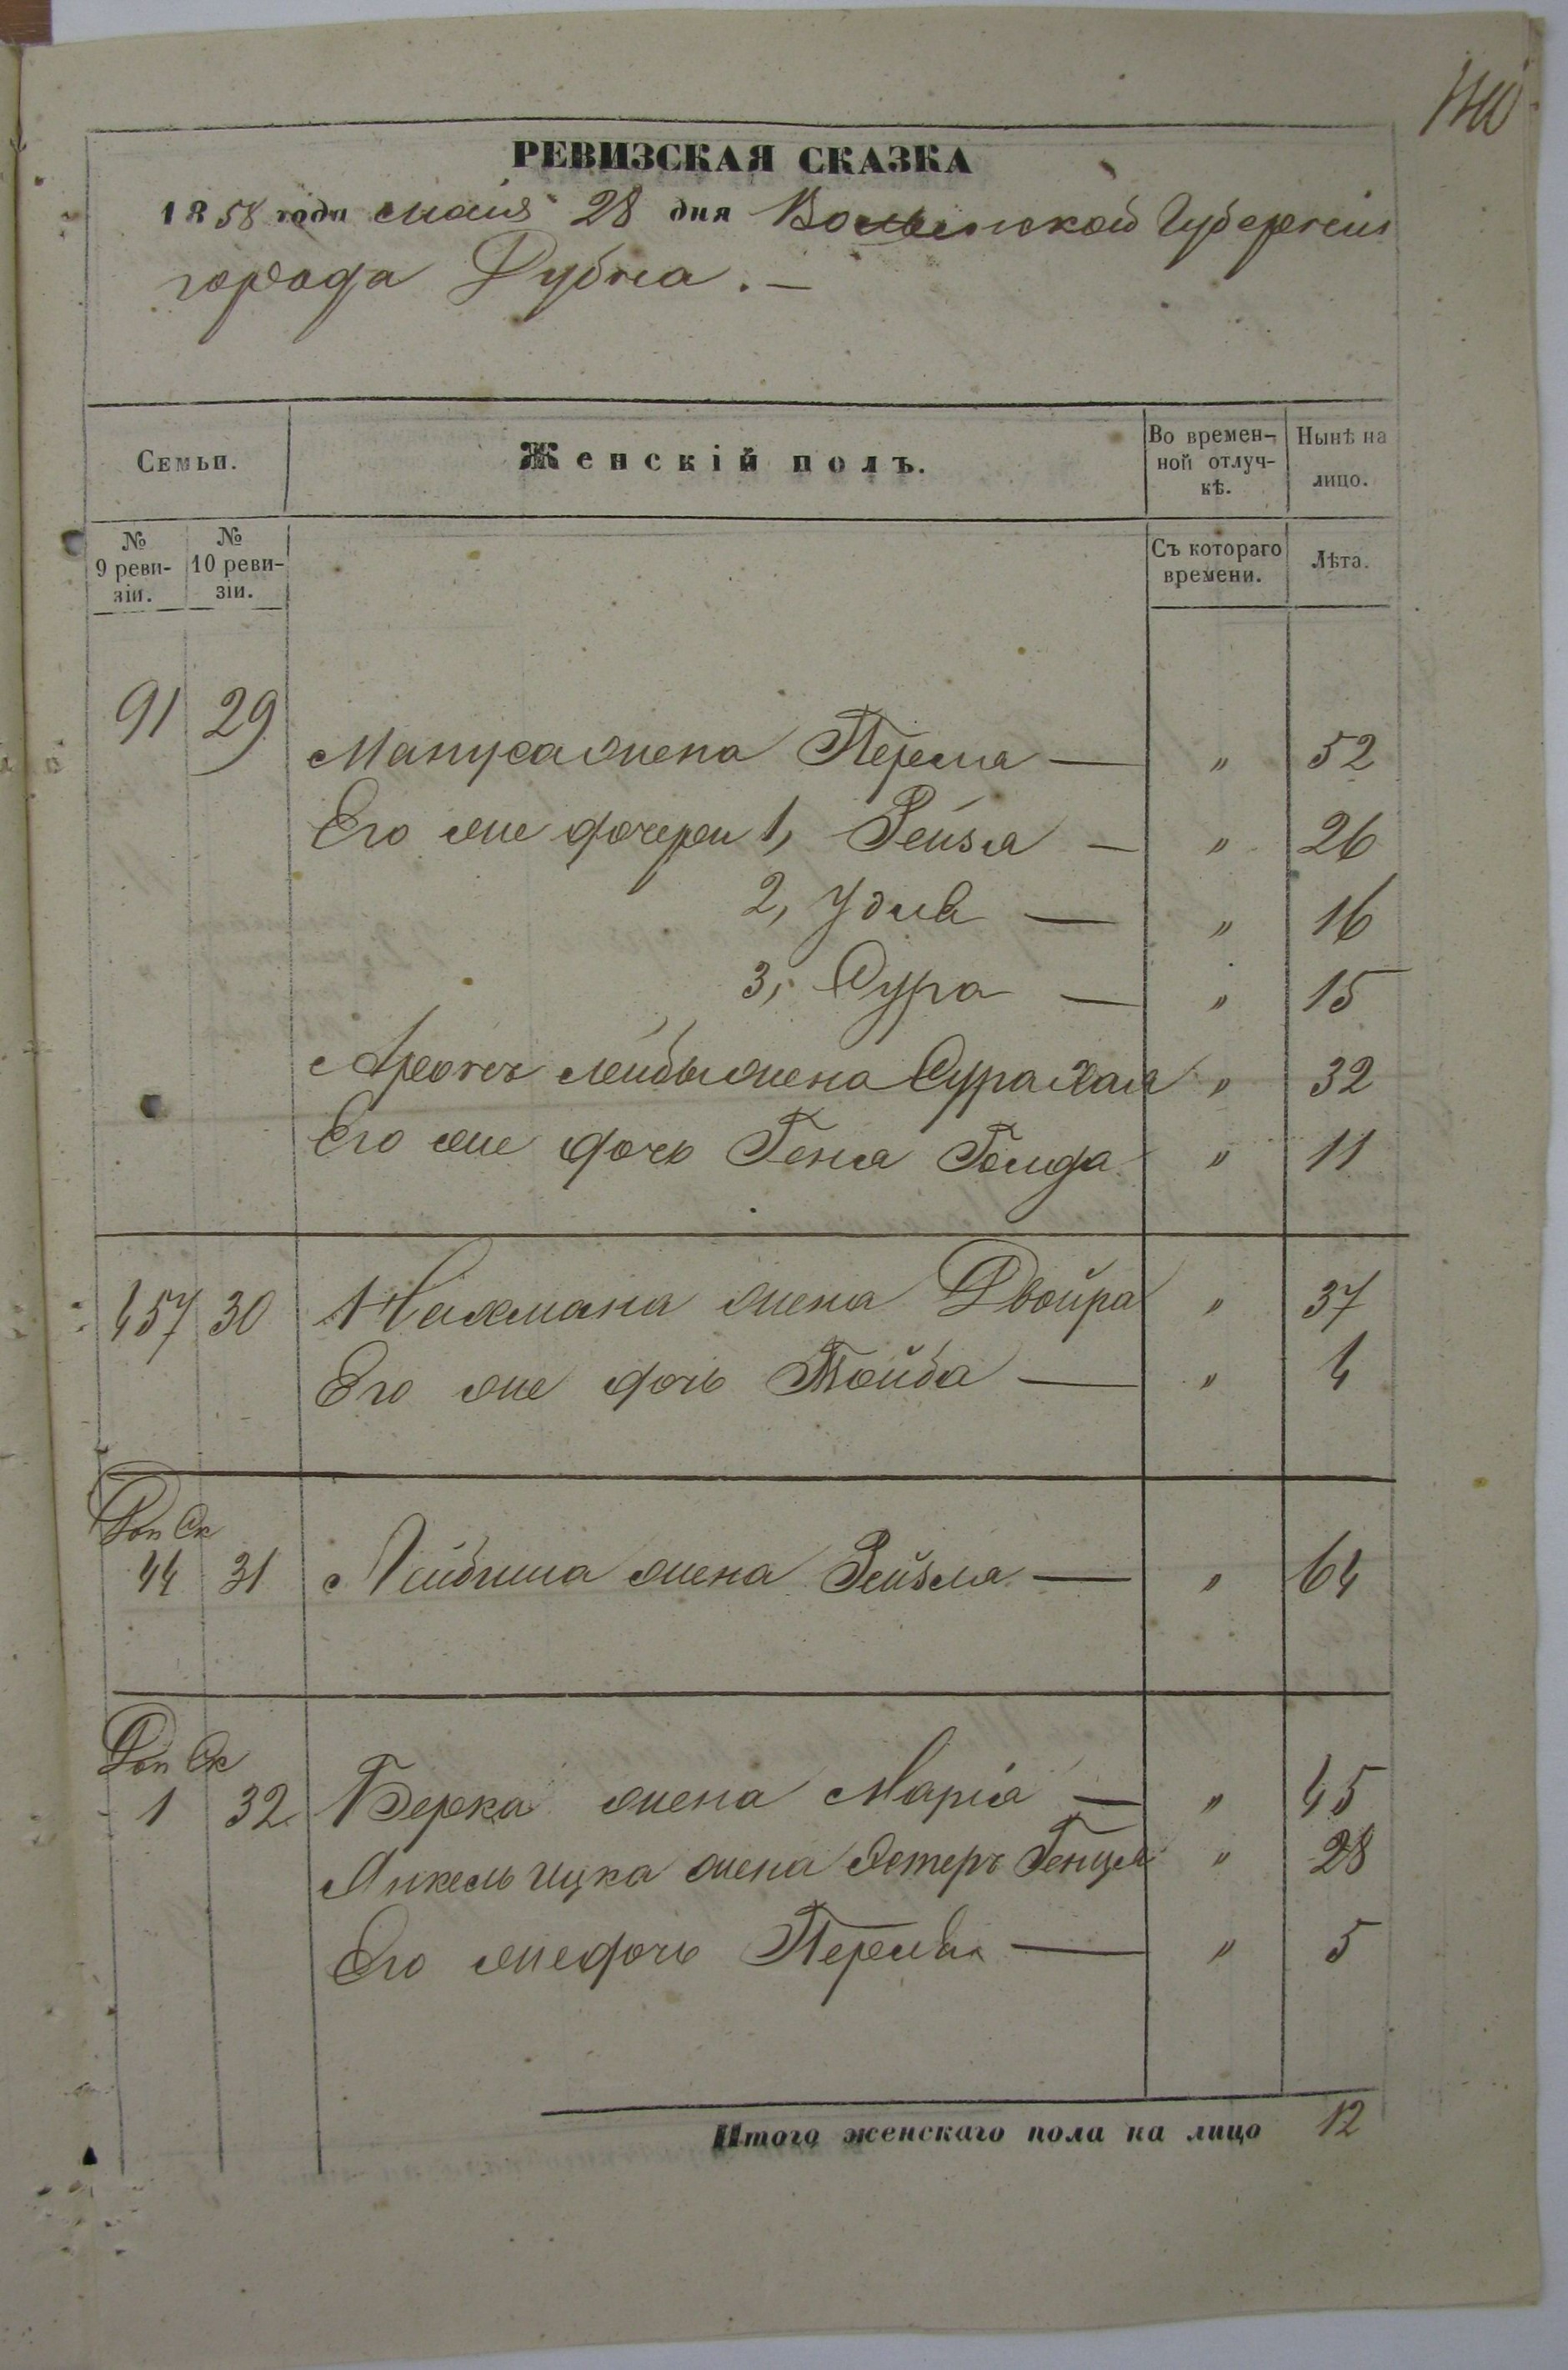 140
РЕВИЗСКАЯ СКАЗКА
1858 года маія 28 дня Волынской Губерніи
города Дубна. —
Семьи. Женскій полъ. Во времен-ной отлуч-кѣ. Нынѣ на лицо.
№ 9 реви-зіи. № 10 реви-зіи. Съ котораго времени. Лѣта.
91 29 Мануса жена Перля — " 52
Его же дочери 1, Рейзя — " 26
2, Удля — " 16
3, Сура — " 15
Аронъ Лейбы жена Сура Хая " 32
Его же дочь Геня Голда " 11
457 30 Нахмана жена Двойра " 37
Его же дочь Тойба — " 4
Доп Ск
44 31 Лейбиша жена Рейзля — " 64
Доп Ск
1 32 Берка жена Марія — " 45
Янкель Ицка жена Эстеръ Генця " 28
Его же дочь Перля — " 5
Итого женскаго пола на лицо 12